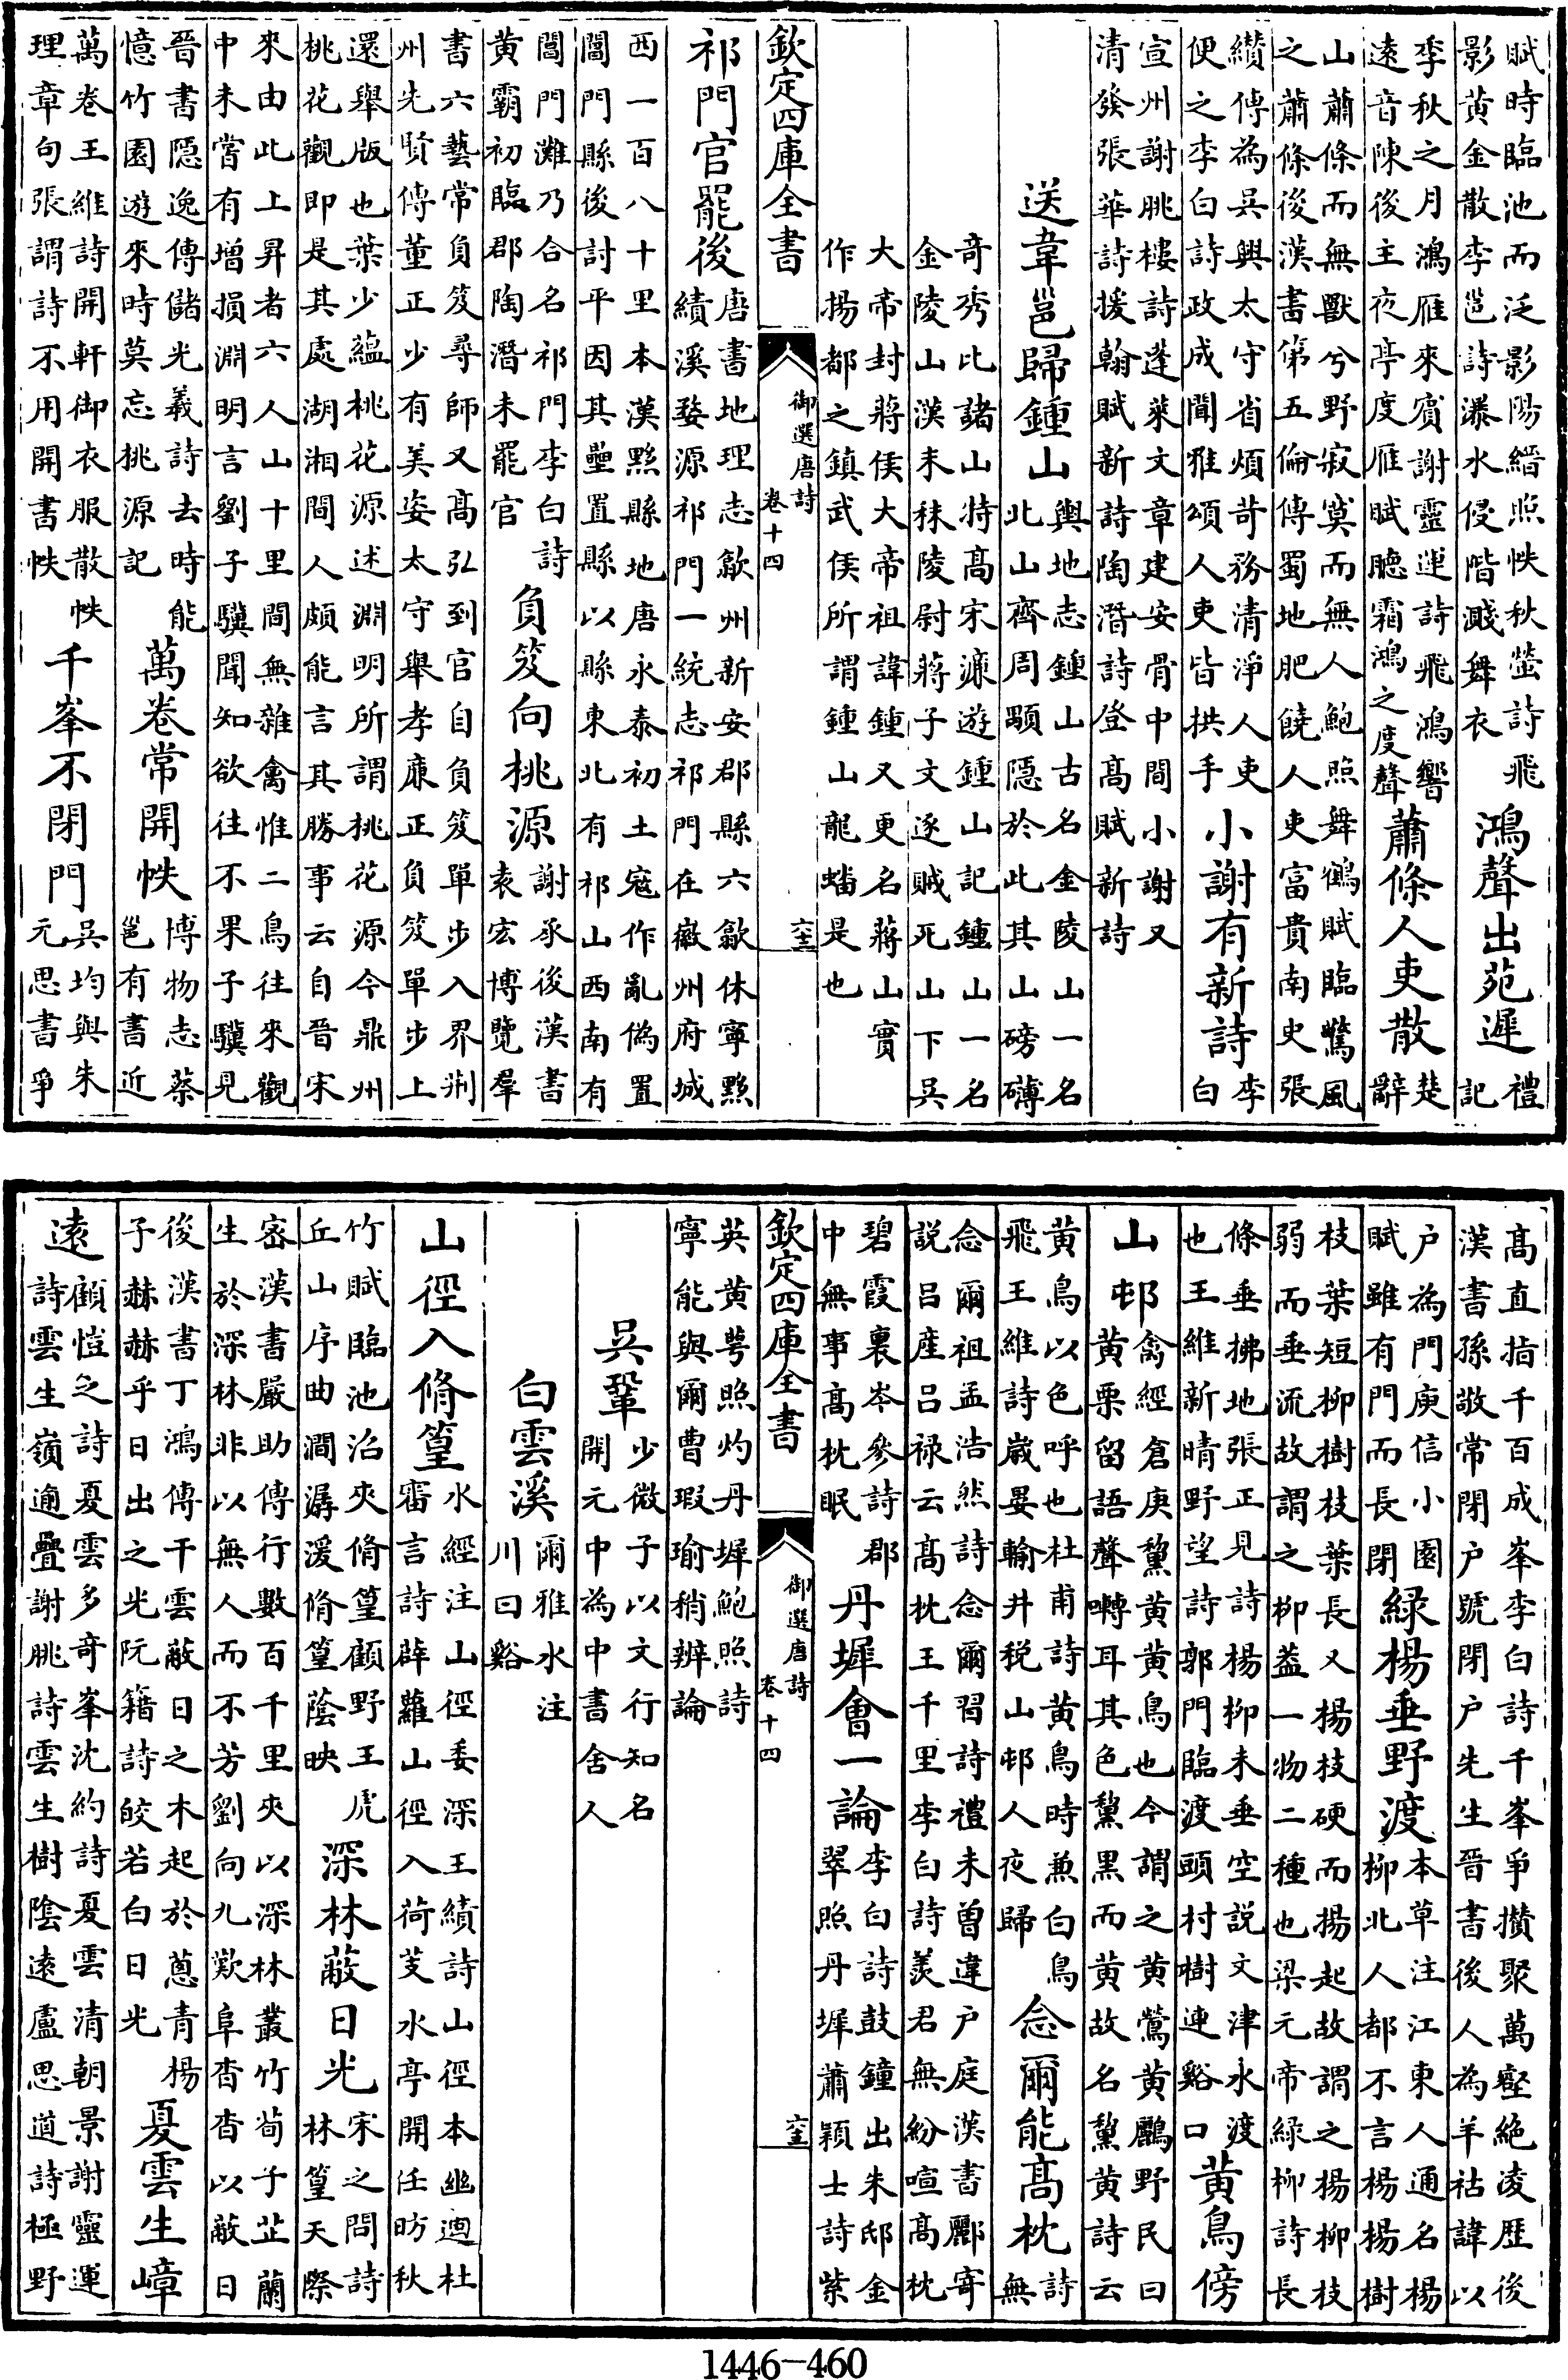 賦時臨池而泛影陽縉照帙秋螢詩飛
影黄金散李邕詩瀑水侵階濺舞衣
鴻聲出苑遲
禮
記
季秋之月鴻雁來賓謝靈運詩飛鴻響
遠音陳後主夜亭度雁賦聽霜鴻之度聲
蕭條人吏散
楚
辭
山蕭條而無獸兮野寂寞而無人鮑照舞鶴賦臨驚風
之蕭條後漢書第五倫傳蜀地肥饒人吏富貴南史張
纘傳為吳興太守省煩苛務清淨人吏
便之李白詩政成聞雅頌人吏皆拱手
小謝有新詩
李
白
宣州謝朓樓詩蓬萊文章建安骨中間小謝又
清發張華詩援翰賦新詩陶潛詩登髙賦新詩
送韋邕歸鍾山
輿地志鍾山古名金陵山一名
北山齊周顒隱於此其山磅礴
竒秀比諸山特髙宋濂遊鍾山記鍾山一名
金陵山漢末秣陵尉蔣子文逐賊死山下吳
大帝封蔣侯大帝祖諱鍾又更名蔣山實
作揚都之鎮武侯所謂鍾山龍蟠是也
欽定四庫全書
御選唐詩
卷十四
祁門官罷後
唐書地理志歙州新安郡縣六歙休寧黟
績溪婺源祁門一統志祁門在徽州府城
西一百八十里本漢黟縣地唐永泰初土寇作亂偽置
閶門縣後討平因其壘置縣以縣東北有祁山西南有
閶門灘乃合名祁門李白詩
黄霸初臨郡陶潛未罷官
負笈向桃源
謝承後漢書
袁宏博覽羣
書六藝常負笈尋師又髙弘到官自負笈單步入界荆
州先賢傳董正少有美姿太守舉孝廉正負笈單步上
還舉版也葉少蘊桃花源述淵明所謂桃花源今鼎州
桃花觀即是其處湖湘間人頗能言其勝事云自晉宋
來由此上昇者六人山十里間無雜禽惟二鳥往來觀
中未嘗有增損淵明言劉子驥聞知欲往不果子驥見
晉書隠逸傳儲光羲詩去時能
憶竹園遊來時莫忘桃源記
萬卷常開帙
博物志蔡
邕有書近
萬卷王維詩開軒御衣服散帙
理章句張謂詩不用開書帙
千峯不閉門
吳均與朱
元思書爭
髙直指千百成峯李白詩千峯爭攢聚萬壑絶凌歴後
漢書孫敬常閉户號閉户先生晉書後人為羊祜諱以
户為門庾信小園
賦雖有門而長閉
緑楊垂野渡
本草注江東人通名楊
柳北人都不言楊楊樹
枝葉短柳樹枝葉長又楊枝硬而揚起故謂之楊柳枝
弱而垂流故謂之柳葢一物二種也梁元帝緑柳詩長
條垂拂地張正見詩楊柳未垂空説文津水渡
也王維新晴野望詩郭門臨渡頭村樹連谿口
黄鳥傍
山邨
禽經倉庚鵹黄黄鳥也今謂之黄鶯黄鸝野民曰
黄栗留語聲囀耳其色鵹黒而黄故名鵹黄詩云
黄鳥以色呼也杜甫詩黄鳥時兼白鳥
飛王維詩歲晏輸井税山邨人夜歸
念爾能髙枕
詩
無
念爾祖孟浩然詩念爾習詩禮未曾違户庭漢書酈寄
説吕産吕禄云髙枕王千里李白詩羨君無紛喧髙枕
碧霞裏岑參詩郡
中無事髙枕眠
丹墀會一論
李白詩鼓鐘出朱邸金
翠照丹墀蕭穎士詩紫
欽定四庫全書
御選唐詩
卷十四
英黄蕚照灼丹墀鮑照詩
寧能與爾曹瑕瑜稍辨論
吳鞏
少微子以文行知名
開元中為中書舍人
白雲溪
爾雅水注
川曰谿
山徑入脩篁
水經注山徑委深王績詩山徑本幽迥杜
審言詩薜蘿山徑入荷芰水亭開任昉秋
竹賦臨池沿夾脩篁顧野王虎
丘山序曲澗潺湲脩篁蔭映
深林蔽日光
宋之問詩
林篁天際
宻漢書嚴助傳行數百千里夾以深林叢竹荀子芷蘭
生於深林非以無人而不芳劉向九歎阜杳杳以蔽日
後漢書丁鴻傳干雲蔽日之木起於蔥青楊
子赫赫乎日出之光阮籍詩皎若白日光
夏雲生嶂
遠
顧愷之詩夏雲多奇峯沈約詩夏雲清朝景謝靈運
詩雲生嶺逾疊謝朓詩雲生樹陰遠盧思道詩極野
1446-460